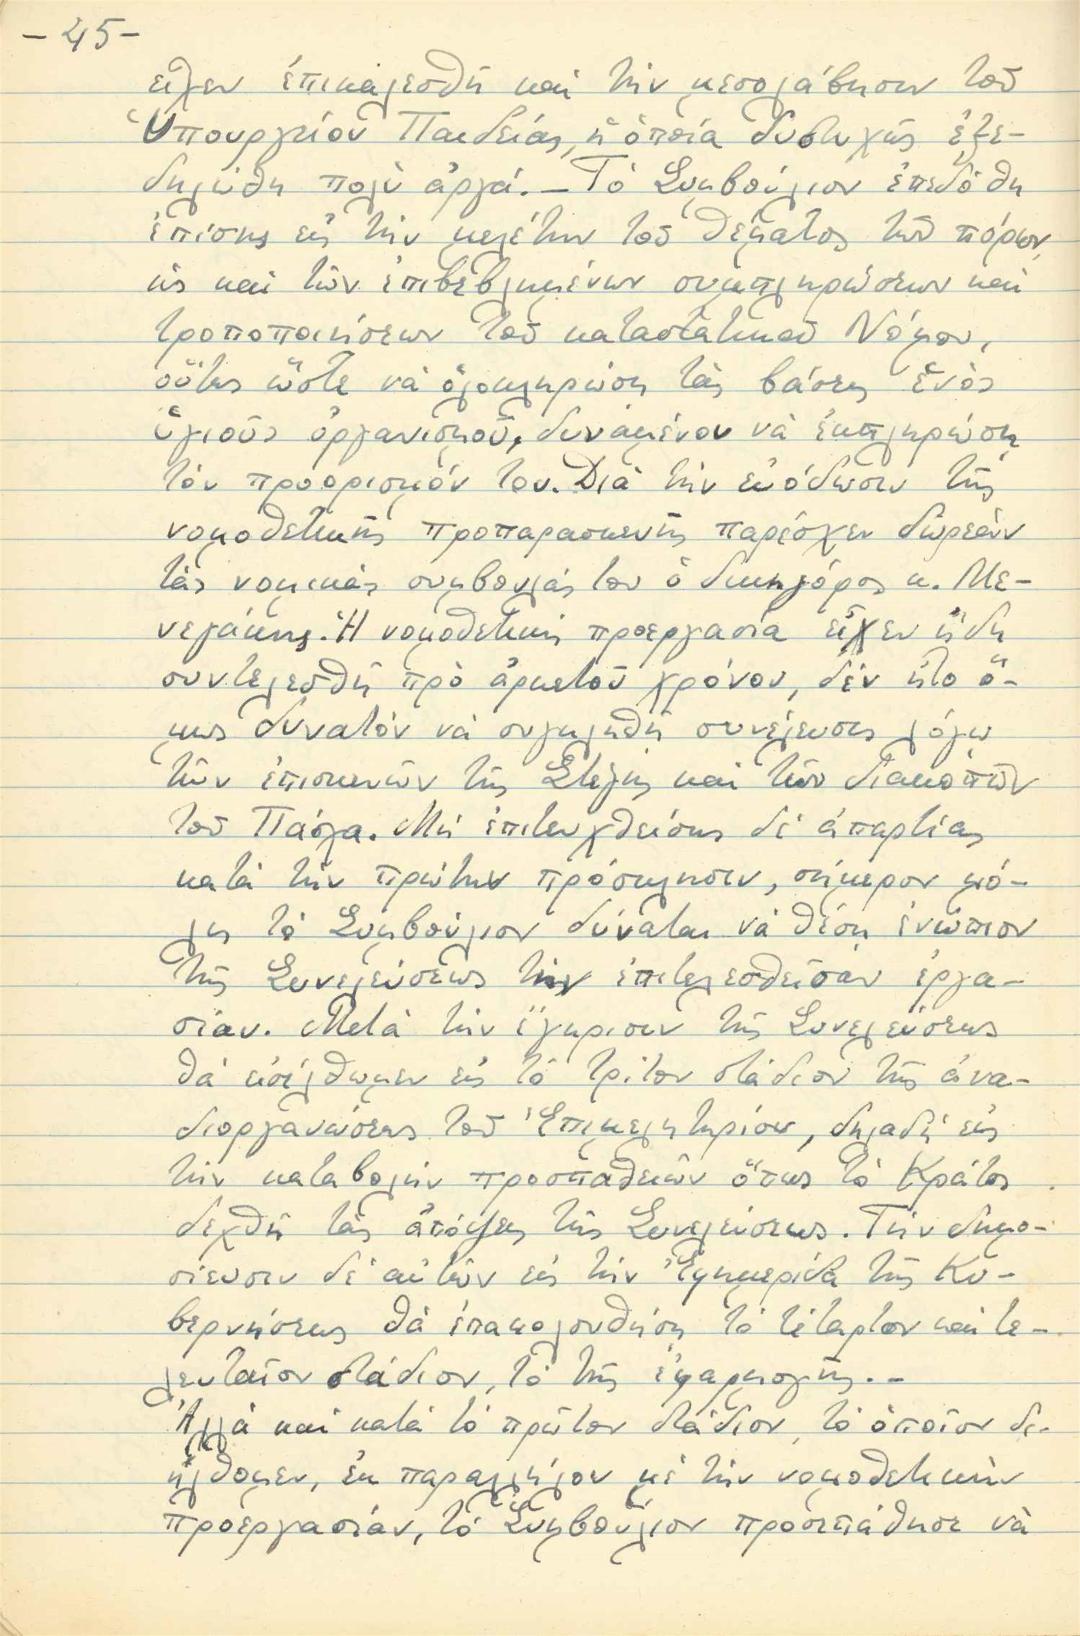 - 45 -
εἶχεν ἐπικαλεσθῆ καὶ τὴν μεσολάβησιν τοῦ
Ὑπουργείου Παιδείας, ἡ ὁποία δυστυχῶς ἐξε-
δηλώθη πολὺ ἀργά. - Τὸ Συμβούλιον ἐπεδόθη
ἐπίσης εἰς τὴν μελέτην τοῦ θέματος τῶν πόρων,
ὡς καὶ τῶν ἐπιβεβλημένων συμπληρώσεων καὶ
τροποποιήσεων τοῦ καταστατικοῦ Νόμου,
οὕτως ὥστε νὰ ὁλοκληρώσῃ τὰς βάσεις ἑνὸς
ὑγιοῦς ὀργανισμοῦ, δυναμένου νὰ ἐκπληρώσῃ
τὸν προορισμόν του. Διὰ τὴν εὐόδωσιν τῆς
νομοθετικῆς προπαρασκευῆς παρέσχεν δωρεὰν
τὰς νομικὰς συμβουλάς του ὁ δικηγόρος κ. Με-
νεγάκης. Ἡ νομοθετικὴ προεργασία εἶχεν ἤδη
συντελεσθῆ πρὸ ἀρκετοῦ χρόνου, δὲν ἦτο ὅ-
μως δυνατὸν νὰ συγκληθῇ συνέλευσις λόγῳ
τῶν ἐπισκευῶν τῆς Στέγης καὶ τῶν διακοπῶν
τοῦ Πάσχα. Μὴ ἐπιτευχθείσης δὲ ἀπαρτίας
κατὰ τὴν πρώτην πρόσκλησιν, σήμερον μό-
λις τὸ Συμβούλιον δύναται νὰ θέσῃ ἐνώπιον
τῆς Συνελεύσεως τὴν ἐπιτελεσθεῖσαν ἐργα-
σίαν. Μετὰ τὴν ἔγκρισιν τῆς Συνελεύσεως
θὰ εἰσέλθωμεν εἰς τὸ τρίτον στάδιον τῆς ἀνα-
διοργανώσεως τοῦ Ἐπιμελητηρίου, δηλαδὴ εἰς
τὴν καταβολὴν προσπαθειῶν ὅπως τὸ Κράτος
δεχθῇ τὰς ἀπόψεις τῆς Συνελεύσεως. Τὴν δημο-
σίευσιν δὲ αὐτῶν εἰς τὴν Ἐφημερίδα τῆς Κυ-
βερνήσεως θὰ ἐπακολουθήσῃ τὸ τέταρτον καὶ τε-
λευταῖον στάδιον, τὸ τῆς ἐφαρμογῆς. -
Ἀλλὰ καὶ κατὰ τὸ πρῶτον στάδιον, τὸ ὁποῖον δι-
ήλθομεν, ἐκ παραλλήλου μὲ τὴν νομοθετικὴν
προεργασίαν, τὸ Συμβούλιον προσεπάθησε νὰ